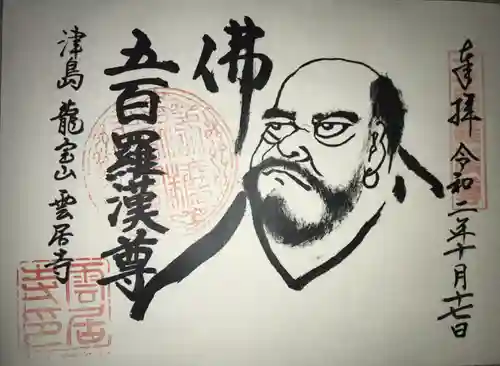 奉拝 令和二年十月十七日
佛
五百羅漢尊
津島 龍宝山 雲居寺
雲居寺印